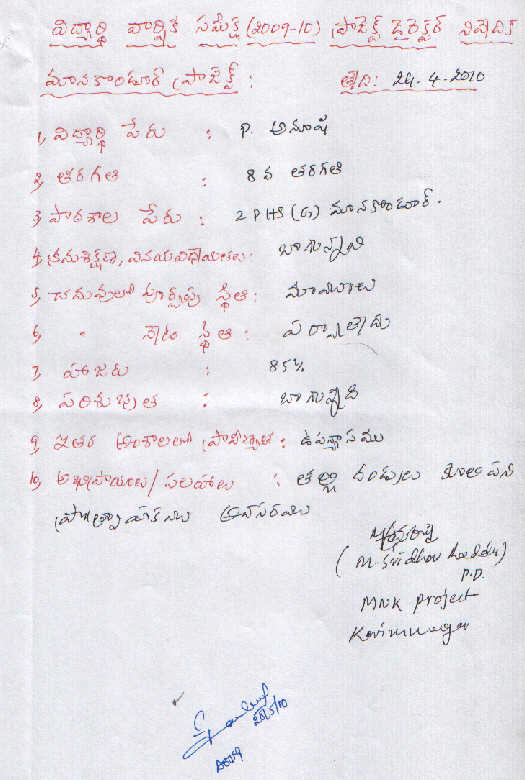 విద్యార్థి వార్షిక సమీక్ష (2009-10) ప్రాజెక్ట్ డైరెక్టర్ నివేదిక
మానకొండూర్ ప్రాజెక్ట్ : తేది: 24.4.2010
1, విద్యార్థి పేరు : P. అనూష
2, తరగతి : 8 వ తరగతి
3, పాఠశాల పేరు : ZPHS (G) మానకొండూర్.
4, క్రమశిక్షణ, వినయవిధేయతలు: బాగున్నవి
5, చదువులో పూర్వపు స్థితి : మామూలు
6, " నేటి స్థితి : పర్వాలేదు
7, హాజరు : 85%
8, పరిశుభ్రత : బాగున్నది
9, ఇతర అంశాలలో ప్రావీణ్యత : ఉపన్యాసము
10, అభిప్రాయాలు/సలహాలు : తల్లి దండ్రులు కూలి పని
ప్రోత్సాహకము అవసరము
(M. Sridhar Reddy)
P.D.
MNK Project
Karimnagar